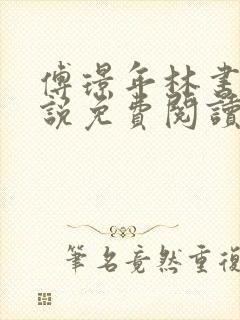 傅璟年林書
說免費閱讀
筆名竟然重復